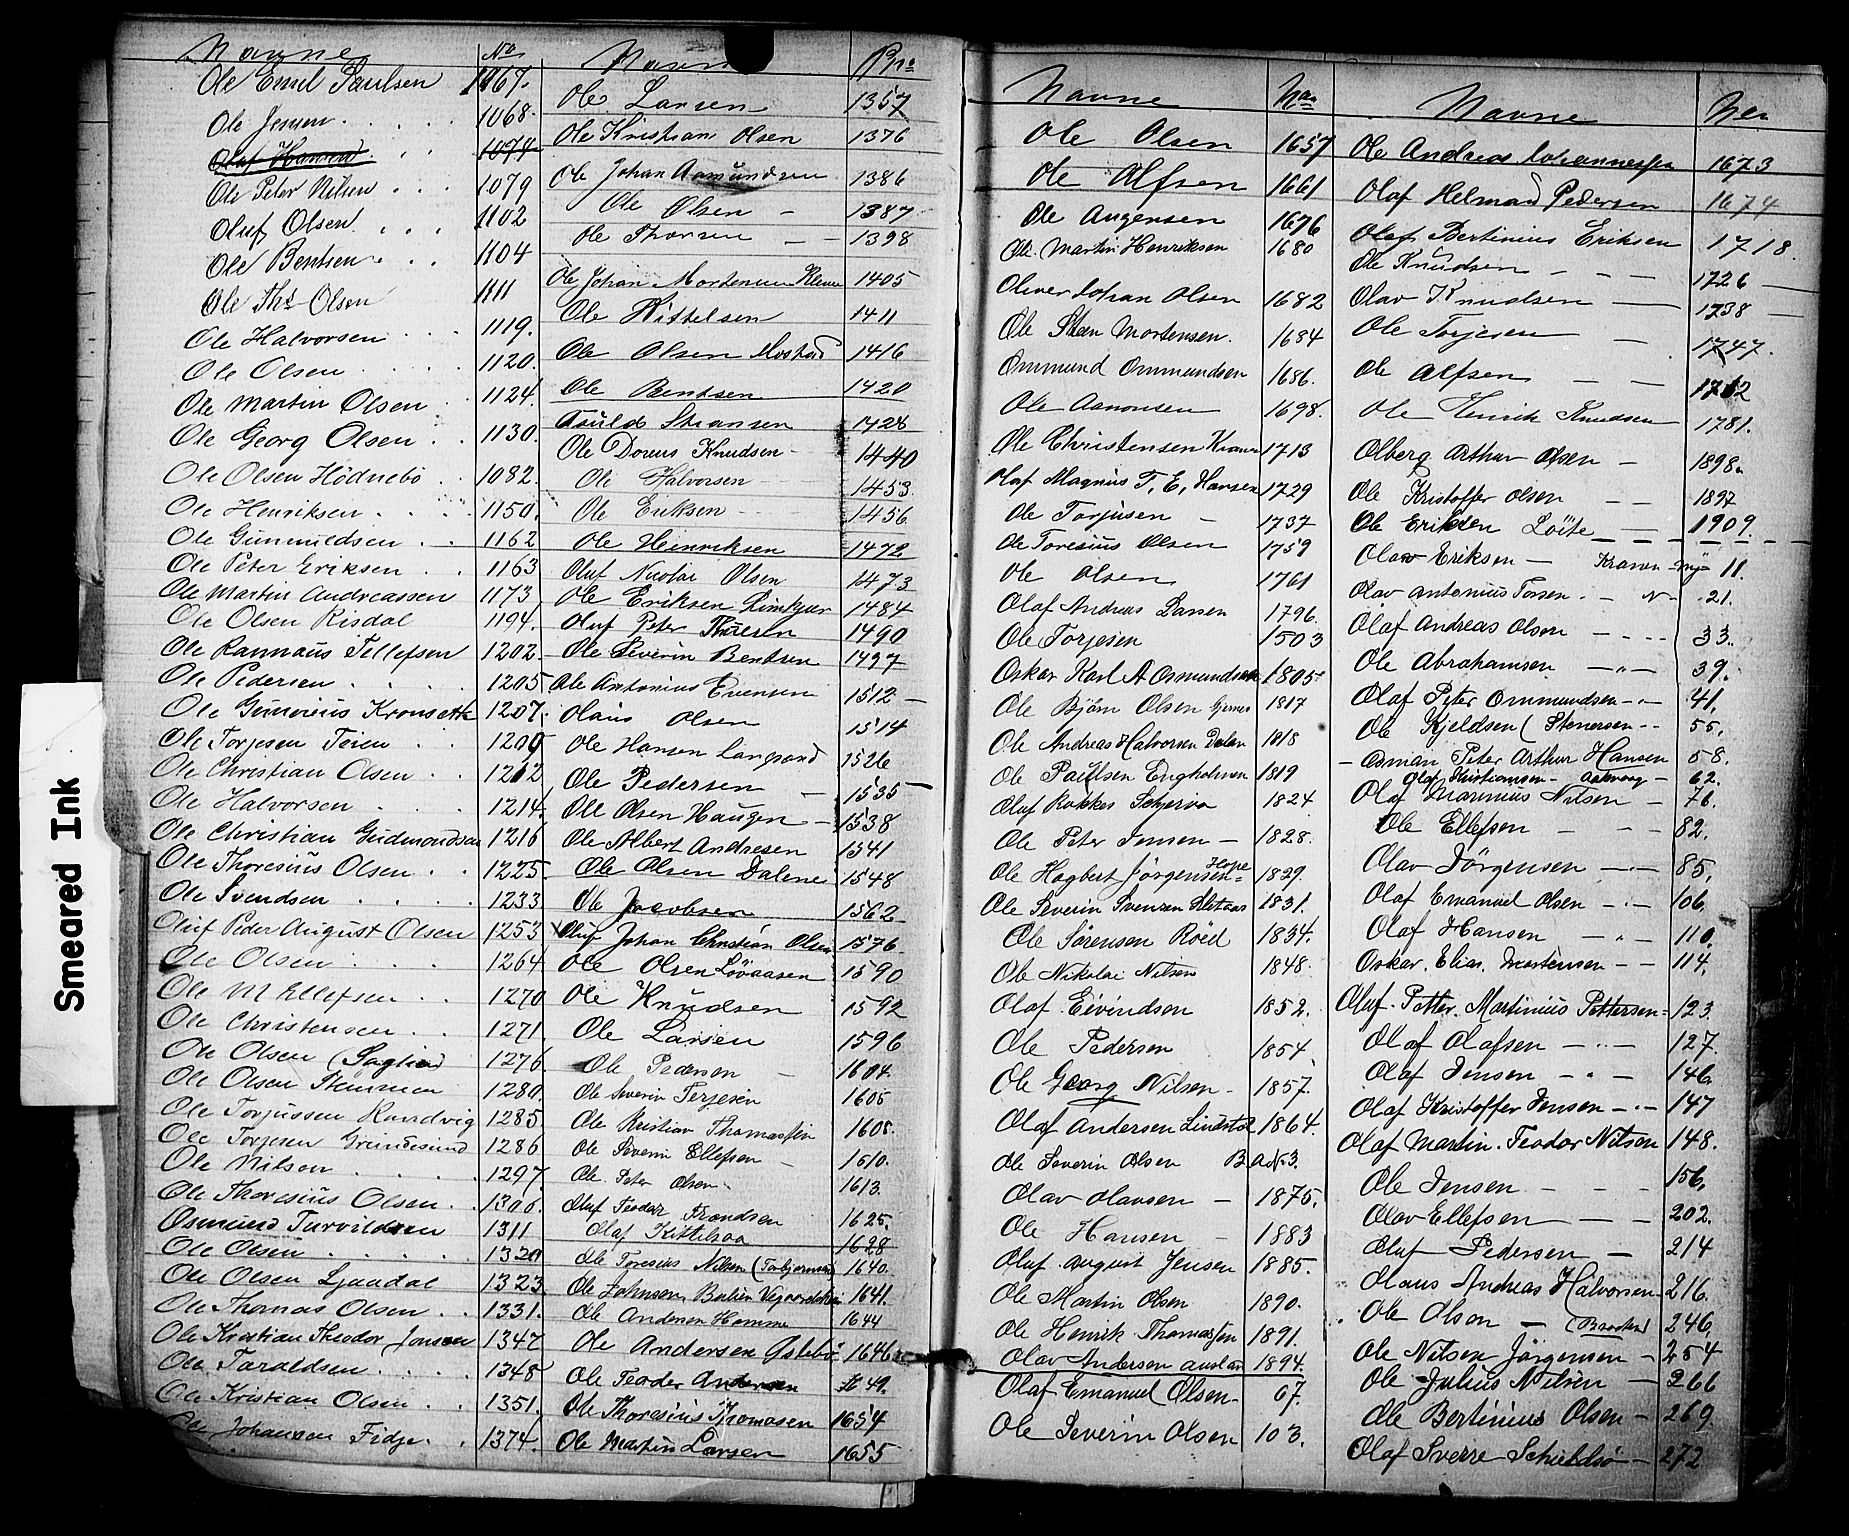 Smeared Ink
Navne No
Ole Emil Paulsen 1067.
Ole Jensen 1068.
Olaf Hansen 1074
Ole Peter Nilsen 1079
Oluf Olsen 1102
Ole Bentsen 1104
Ole Ths Olsen 1111
Ole Halvorsen 1119.
Ole Olsen 1120.
Ole Martin Olsen 1124.
Ole Georg Olsen 1130.
Ole Olsen Hödnebö 1082.
Ole Henriksen 1150.
Ole Gunnuldsen 1162
Ole Peter Eriksen 1163
Ole Martin Andreassen 1173
Ole Olsen Risdal 1194.
Ole Rasmus Tellefsen 1202
Ole Pedersen 1205
Ole Gunerius 1207.
Ole Torjesen Teien 1209
Ole Christian Olsen 1212
Ole Halvorsen 1214.
Ole Christian Gudmundsen 1216
Ole Thoresius Olsen 1225.
Ole Svendsen 1233
Oluf Peder August Olsen 1253
Ole Olsen 1264
Ole M Ellefsen 1270
Ole Christensen 1271
Ole Olsen 1276
Ole Olsen 1280.
Ole Torjussen Randvig 1285.
Ole Torjesen 1286
Ole Nilsen 1297.
Ole Thoresius Olsen 1306.
Osmund 1311
Ole Olsen 1320
Ole Olsen Ljaadal 1323
Ole Thomas Olsen 1331.
Ole Kristian Theodor Jensen 1347
Ole Taraldsen 1348
Ole Kristian Olsen 1351.
Ole Johansen Fidje 1374.
Navne
Ole Larsen 1357
Ole Kristian Olsen 1376
Ole Johan Aamundsen 1386
Ole Olsen 1387
Ole Thorsen 1398
Ole Johan Mortensen 1405
Ole Kittelsen 1411
Ole Olsen Mostad 1416
Ole Bentsen 1420
1428
Ole Knudsen 1440
Ole Halvorsen 1453
Ole Eriksen 1456
Ole Heinriksen 1472
Oluf Nicolai Olsen 1473
Ole Eriksen Limkjær 1484
Oluf Peter 1490
Ole Severin Bentsen 1497
Ole Antonius Evensen 1512
Olaus Olsen 1514
Ole Hansen 1526
Ole Pedersen 1535
Ole Olsen Haugen 1538
Ole Albert Andresen 1541
Ole Olsen Dalene 1548
Ole Jacobsen 1562
Oluf Johan Christian Olsen 1576
Ole Olsen Lövaasen 1590
Ole Knudsen 1592
Ole Larsen 1596
Ole Pedersen 1604
Ole Severin Terjesen 1605
Ole Kristian Thomassen 1608.
Ole Severin Ellefsen 1610.
Ole Peter Olsen 1613
Oluf Teodor Frandsen 1625.
Olaf Kittelsaa 1628
Ole Toresius Nilsen 1640.
Ole Johnsen 1641.
Ole Andersen Homme 1644
Ole Andersen Östebö 1646
Ole Teodor Andersen 1649.
Ole Thoresius Thomasen 1654
Ole Martin Larsen 1655
Navne
Ole Olsen 1657
Ole Alfsen 1661
Ole Augensen 1676
Ole Martin Henriksen 1680
Oliver Johan Olsen 1682
Ole Mortensen. 1684
Ommund Ommundsen 1686.
Ole Aanonsen 1698.
Ole Christensen 1713
Olaf Magnus T. E. Hansen 1729
Ole Torjusen 1737
Ole Toresius Olsen 1759
Ole Olsen 1761
Olaf Andreas Larsen 1796.
Ole Torjesen 1503
Oskar Karl A Osmundsen 1805
Ole Björn Olsen 1817
Ole Andreas Halvorsen Dalen 1818
Ole Paulsen Engholmen 1819
Oluf 1824
Ole Peter Jensen 1828.
Ole Hagbert Jörgensen 1829.
Ole Severin Svensen 1831.
Ole Sörensen Röed 1834.
Ole Nikolai Nilsen 1848.
Olaf Eivindsen 1852.
Ole Pedersen 1854
Ole Georg Nilsen 1857.
Olaf Andersen 1864.
Ole Severin Olsen
Olav Olausen 1875.
Ole Hansen 1883
Olaf August Jensen 1885.
Ole Martin Olsen 1890.
Ole Henrik Thomassen 1891.
Olav Andersen 1894.
Olaf Emanuel Olsen 67.
Ole Severin Olsen 103.
Navne
Ole Andreas Johannessen 1673
Olaf Helmar Pedersen 1674
Olaf Bertinius Eriksen 1718.
Ole Knudsen 1726
Olav Knudsen 1738
Ole Torjesen 1747.
Ole Alfsen 1762
Ole Henrik Knudsen 1781.
Olberg Arthur Olsen 1898.
Ole Kristoffer Olsen 1897
Ole Eriksen Löite 1909.
Olav Eriksen 11.
Olav Antonius Torsen 21.
Olaf Andreas Olsen 33.
Ole Abrahamsen 39.
Olaf Peter Ommundsen 41.
Ole Kjeldsen (Stenersen 55.
Osman Peter Arthur Hansen 58.
Olaf Kristiansen 62.
Olaf Marinius Nilsen 76.
Ole Ellefsen 82.
Olav Jörgensen 85.
Olaf Emanuel Olsen 106.
Olaf Hansen 110.
Oskar Elias Mortensen 114.
Oluf Petter Martinius Pettersen 123
Olaf Olafsen 127.
Olaf Jensen 146
Olaf Kristoffer Jensen 147
Olaf Martin Teodor Nilson 148.
Ole Jensen 156.
Olav Ellefsen 202.
Oluf Pedersen 214
Olaus Andreas Halvorsen 216.
Ole Olson (Braaten) 246
Ole Nilsen Jörgensen 254
Ole Julius Nilsen 266
Ole Bertinius Olsen 269.
Olaf Sverre 272